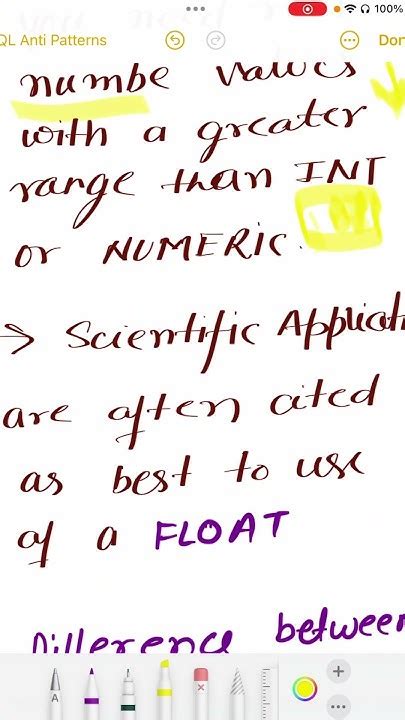 QL Anti Patterns
Don
100%
numbe values
with a greater
range than INT
or NUMERIC.
→ Scientific Applicati
are often cited
as best to use
of a FLOAT
Difference between
A